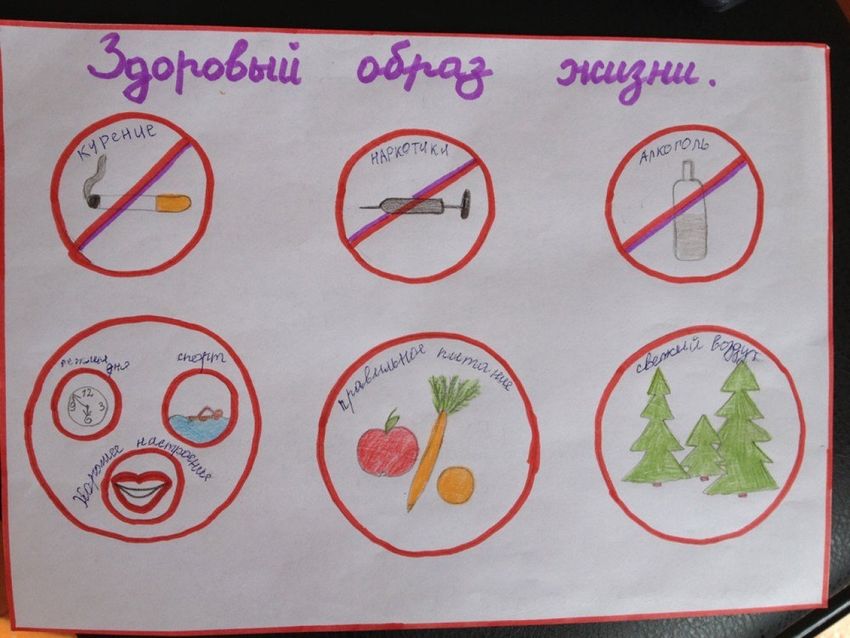 Здоровый образ жизни.
курение
наркотики
алкоголь
режим дня
спорт
12
3
6
9
хорошее настроение
правильное питание
свежий воздух